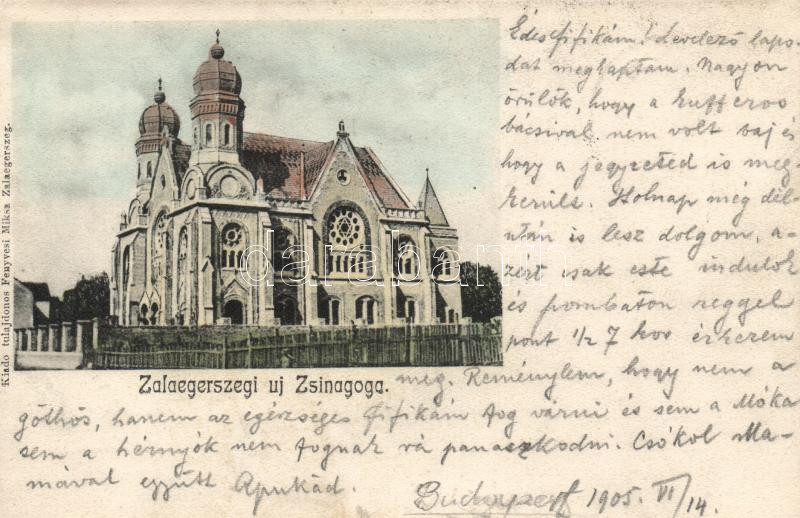 Kiadó tulajdonos Fenyvesi Miksa Zalaegerszeg.
Zalaegerszegi uj Zsinagoga.
Édes Fifikám! Levelező lapo-
dat megkaptam. Nagyon
örülök, hogy a kufferos
bácsival nem volt baj és
hogy a jegyzeted is meg
került. Holnap még dél-
után is lesz dolgom, a-
zért csak este indulok
és pombaton reggel
pont 1/2 7 kor érkezem
meg. Reménylem, hogy nem a
göthös, hanem az egészséges Fifikám fog várni és sem a Móka
sem a hernyók nem fognak rá panaszkodni. Csókol Ma-
mával együtt Apukád.
Budapest 1905. VI/14.
darabanth